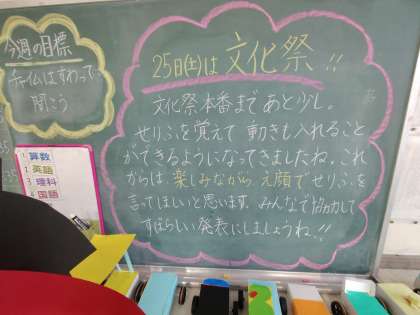 今週の目標
チャイムはすわって
聞こう
25日(土)は 文化祭!!
文化祭本番まであと少し。
せりふを覚えて 動きも入れること
ができるようになってきましたね。これ
からは、楽しみながら 笑顔で せりふを
言ってほしいと思います。みんなで協力して
すばらしい発表にしましょうね!!
1 算数
2 英語
3 理科
4 国語